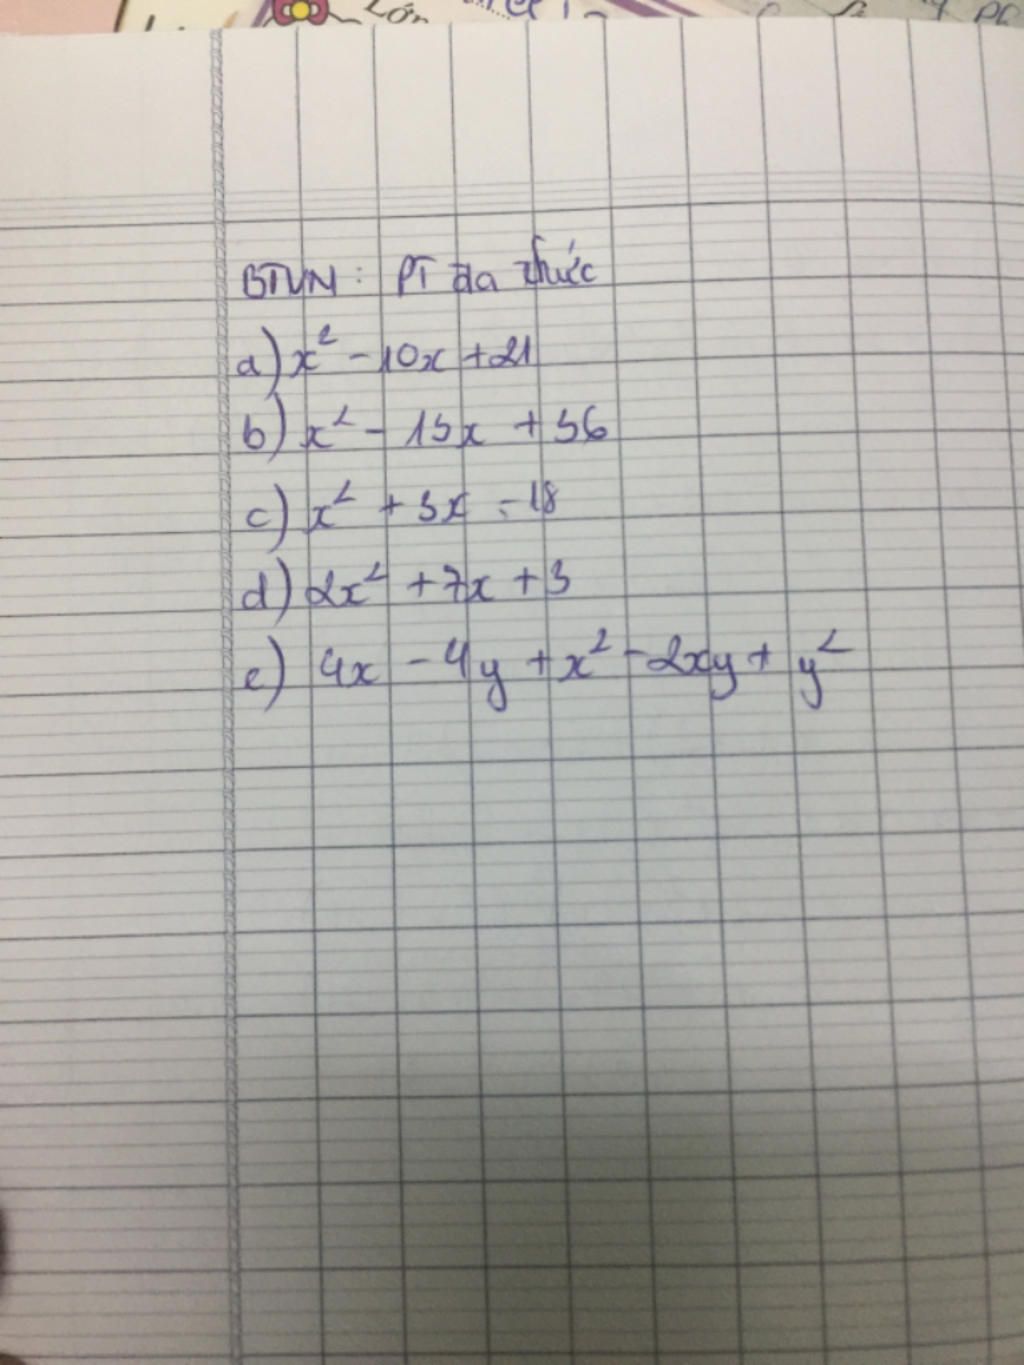 Lớn
BTVN: PT đa thức
a) x² - 10x + 21
b) x² - 15x + 56
c) x² + 3x - 18
d) 2x² + 7x + 3
e) 4x - 4y + x² - 2xy + y²